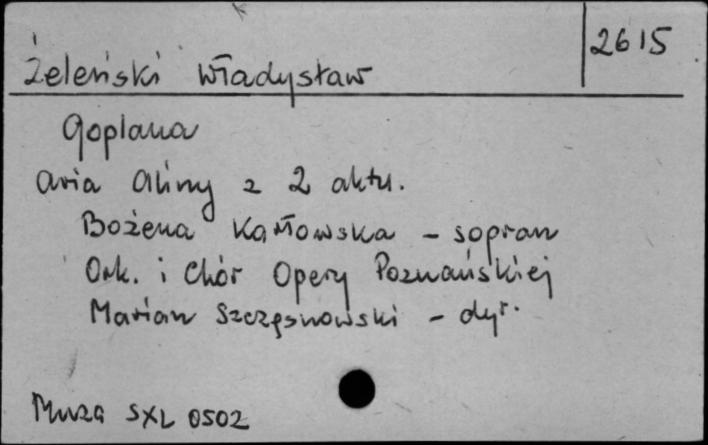 2615
Żeleński Władysław
Goplana
Aria Aliny z 2 aktu.
Bożena Karłowska - sopran
Ork. i Chór Opery Poznańskiej
Marian Szczęsnowski - dyr.
Muza SXL 0502